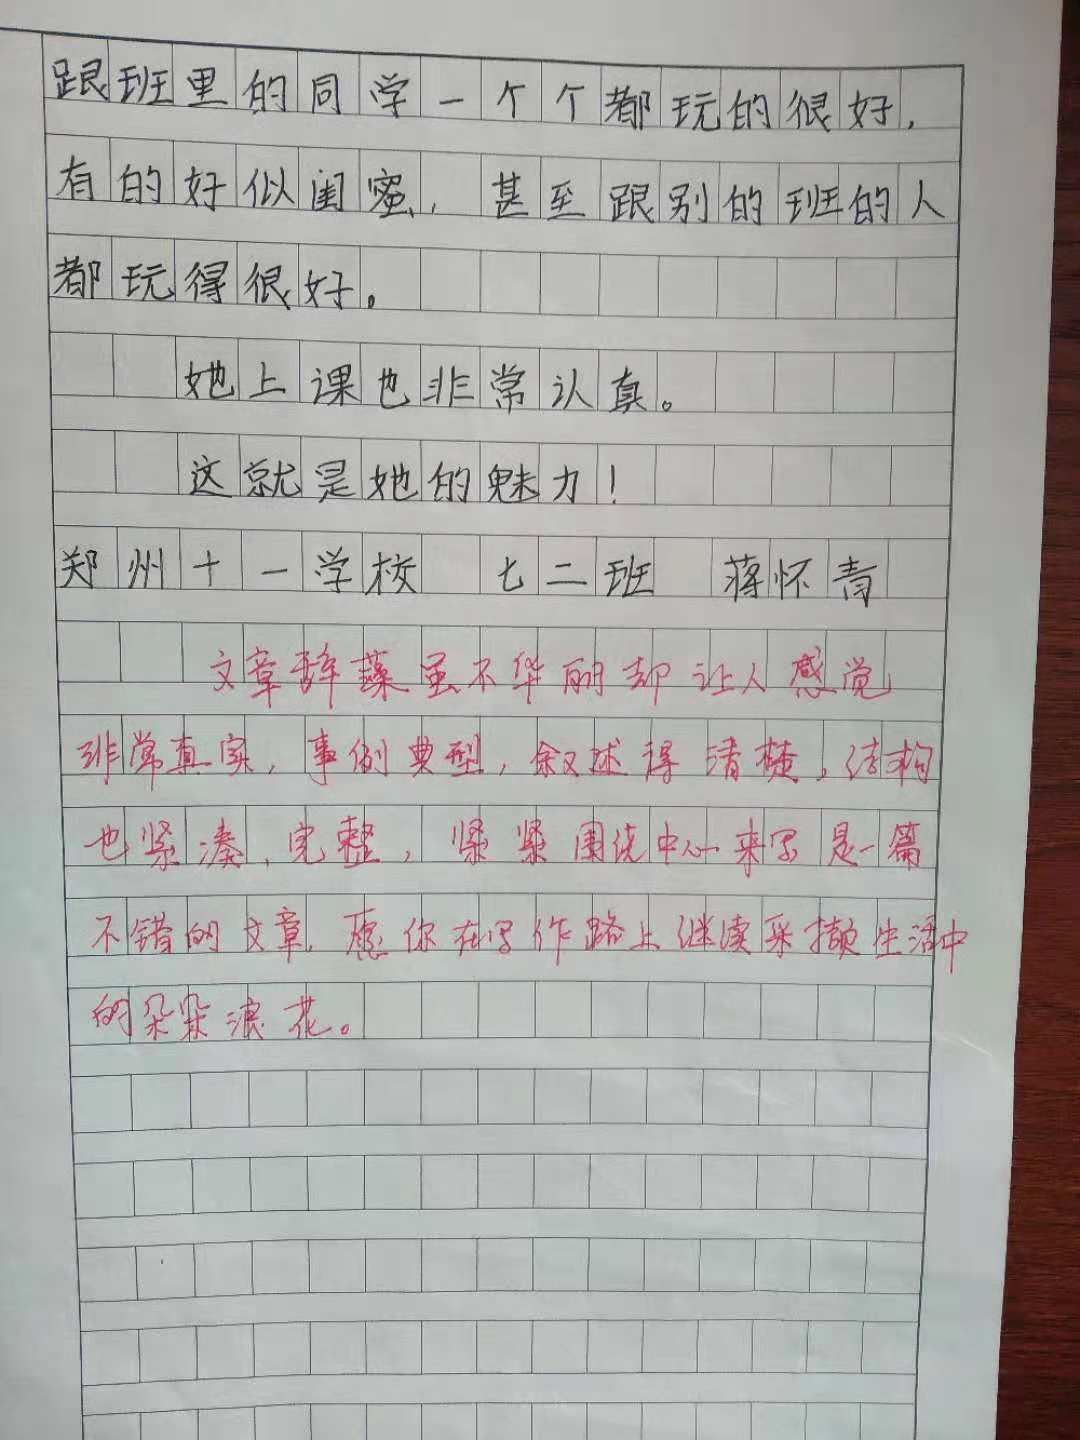 跟班里的同学一个个都玩的很好,
有的好似闺蜜,甚至跟别的班的人
都玩得很好。
她上课也非常认真。
这就是她的魅力!
郑州十一学校 七二班 蒋怀青
文章辞藻虽不华丽却让人感觉
非常真实,事例典型,叙述得清楚,结构
也紧凑、完整,紧紧围绕中心来写是一篇
不错的文章,愿你在写作路上继续采撷生活中
的朵朵浪花。